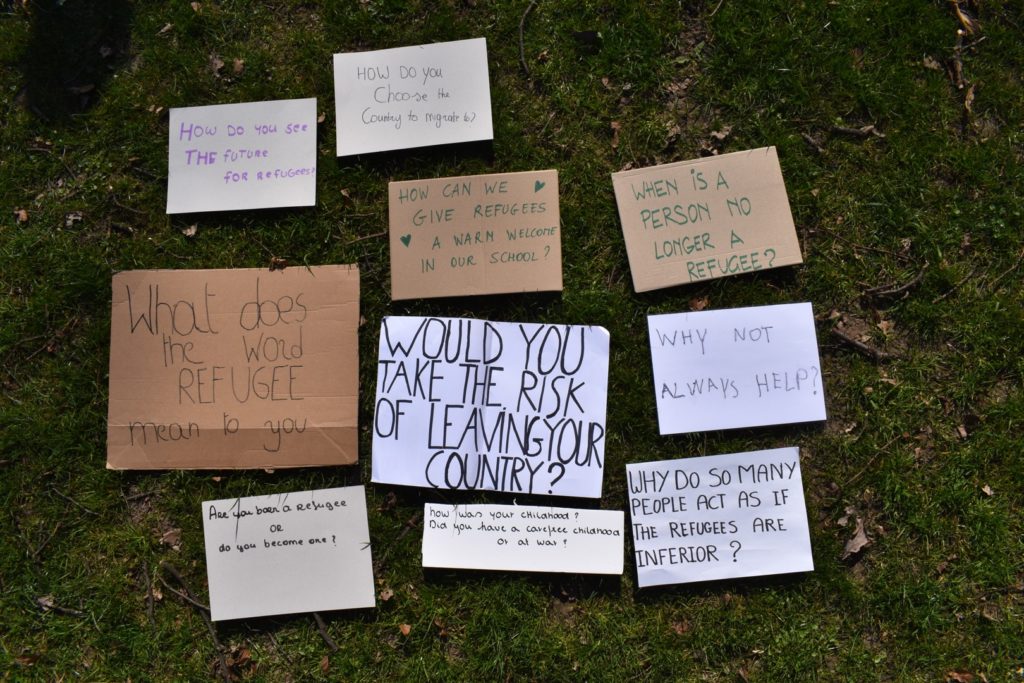 HOW DO YOU
Choose the
Country to migrate to?
HOW DO YOU SEE
THE FUTURE
FOR REFUGEES?
HOW CAN WE
GIVE REFUGEES
A WARN WELCOME
IN OUR SCHOOL?
WHEN IS A
PERSON NO
LONGER A
REFUGEE?
What does
the WORD
REFUGEE
mean to you
WOULD YOU
TAKE THE RISK
OF LEAVING YOUR
COUNTRY?
WHY NOT
ALWAYS HELP?
Are you born a refugee
OR
do you become one?
How was your childhood?
Did you have a carefree childhood
or at war?
WHY DO SO MANY
PEOPLE ACT AS IF
THE REFUGEES ARE
INFERIOR?